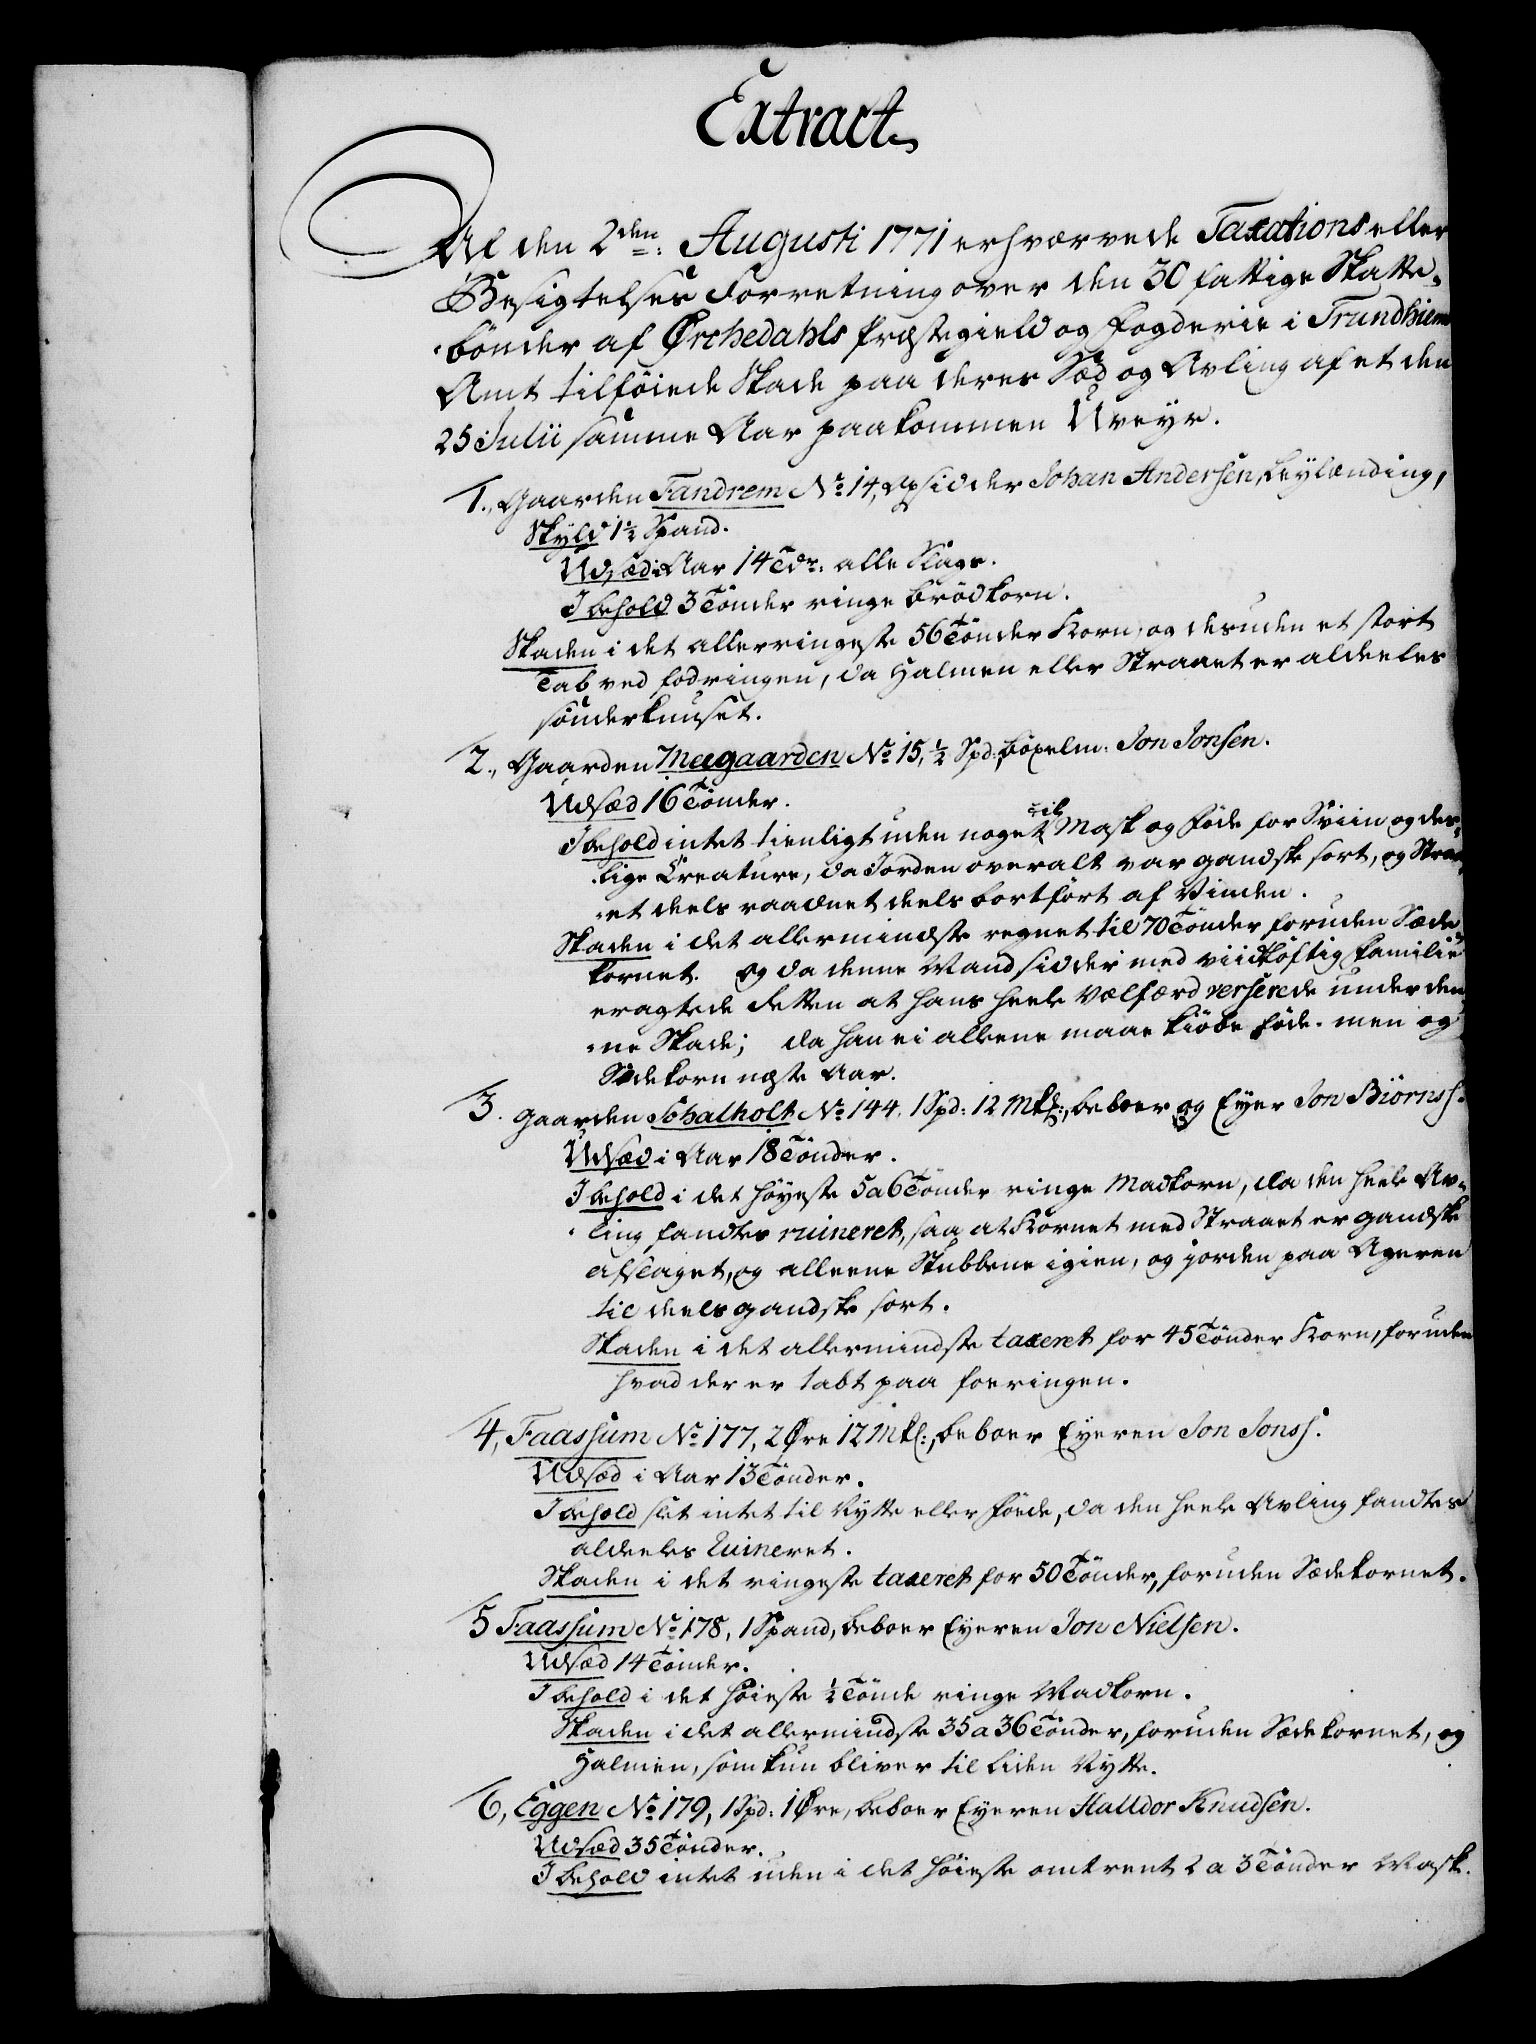 Extract
Af den 2den: Augusti 1771 erhværvede Taxations eller
Besigtelses Forretning over den 30 fattige Skatte-
bønder af Ørchedahls Præstegield og Fogderie i Trundhiems
Amt tilføiede Skade paa deres Sæd og Avling af et den
25 Julii samme Aar paakommen Uveyr.
1., Gaarden Fandrem No 14, Opsidder Johan Andersen, Leylænding,
Skyld 1½ Spand.
Udsæd i Aar 14 Tdr: alle Slags.
I behold 3 Tønder ringe Brødkorn.
Skaden i det allerringeste 56 Tønder Korn, og desuden et stort
Tab ved fodringen, da Halmen eller Straaet er aldeeles
sønderknuset.
2., Gaarden Meegaarden No 15, ½ Spd: Boxelm: Jon Jonsen.
Udsæd 16 Tønder.
I behold intet tienligt uden noget til Mask og Føde for Sviin og des-
lige Creature, da Jorden overalt var gandske sort, og Straa-
et deels raadnet deels bortført af Vinden.
Skaden i det allermindste regnet til 70 Tønder foruden Sæde
kornet. og da denne Mand sidder med viidløftig Familie
eragtede Retten at hans heele Vælfærd verserede under den-
ne Skade; da han ei alleene maae kiøbe Føde. men og
Sædekorn næste Aar.
3. Gaarden Schalholt No 144. 1 Spd: 12 Mkl:, beboer og Eyer Jon Biörnss:
Udsæd i Aar 18 Tønder.
I behold i det høyeste 5 a 6 Tønder ringe Madkorn, da den heele Av-
ling fandtes ruineret, saa at Kornet med Straaet er gandske
afslaget, og alleene Stubbene igien, og jorden paa Ageren
til deels gandske sort.
Skaden i det allermindste taxeret for 45 Tønder Korn, foruden
hvad der er tabt paa foeringen.
4, Faassum No 177, 2 Øre 12 Mkl:, beboer Eyeren Jon Jonss.
Udsæd i Aar 13 Tønder.
I behold slet intet til Nytte eller Føede, da den heele Avling fandtes
aldeeles Ruineret.
Skaden i det ringeste taxeret for 50 Tønder, foruden Sædekornet.
5 Faassum No 178, 1 Spand, beboer Eyeren Jon Nielsen.
Udsæd 14 Tønder.
I behold i det høieste ½ Tønde ringe Madkorn.
Skaden i det allermindste 35 a 36 Tønder, foruden Sædekornet, og
Halmen, som kun bliver til liden Nytte.
6, Eggen No 179, 1 Spd: 1 Øre, beboer Eyeren Halldor Knudsen.
Udsæd 35 Tønder.
I behold intet uden i det høieste omtrent 2 a 3 Tønder Mask.